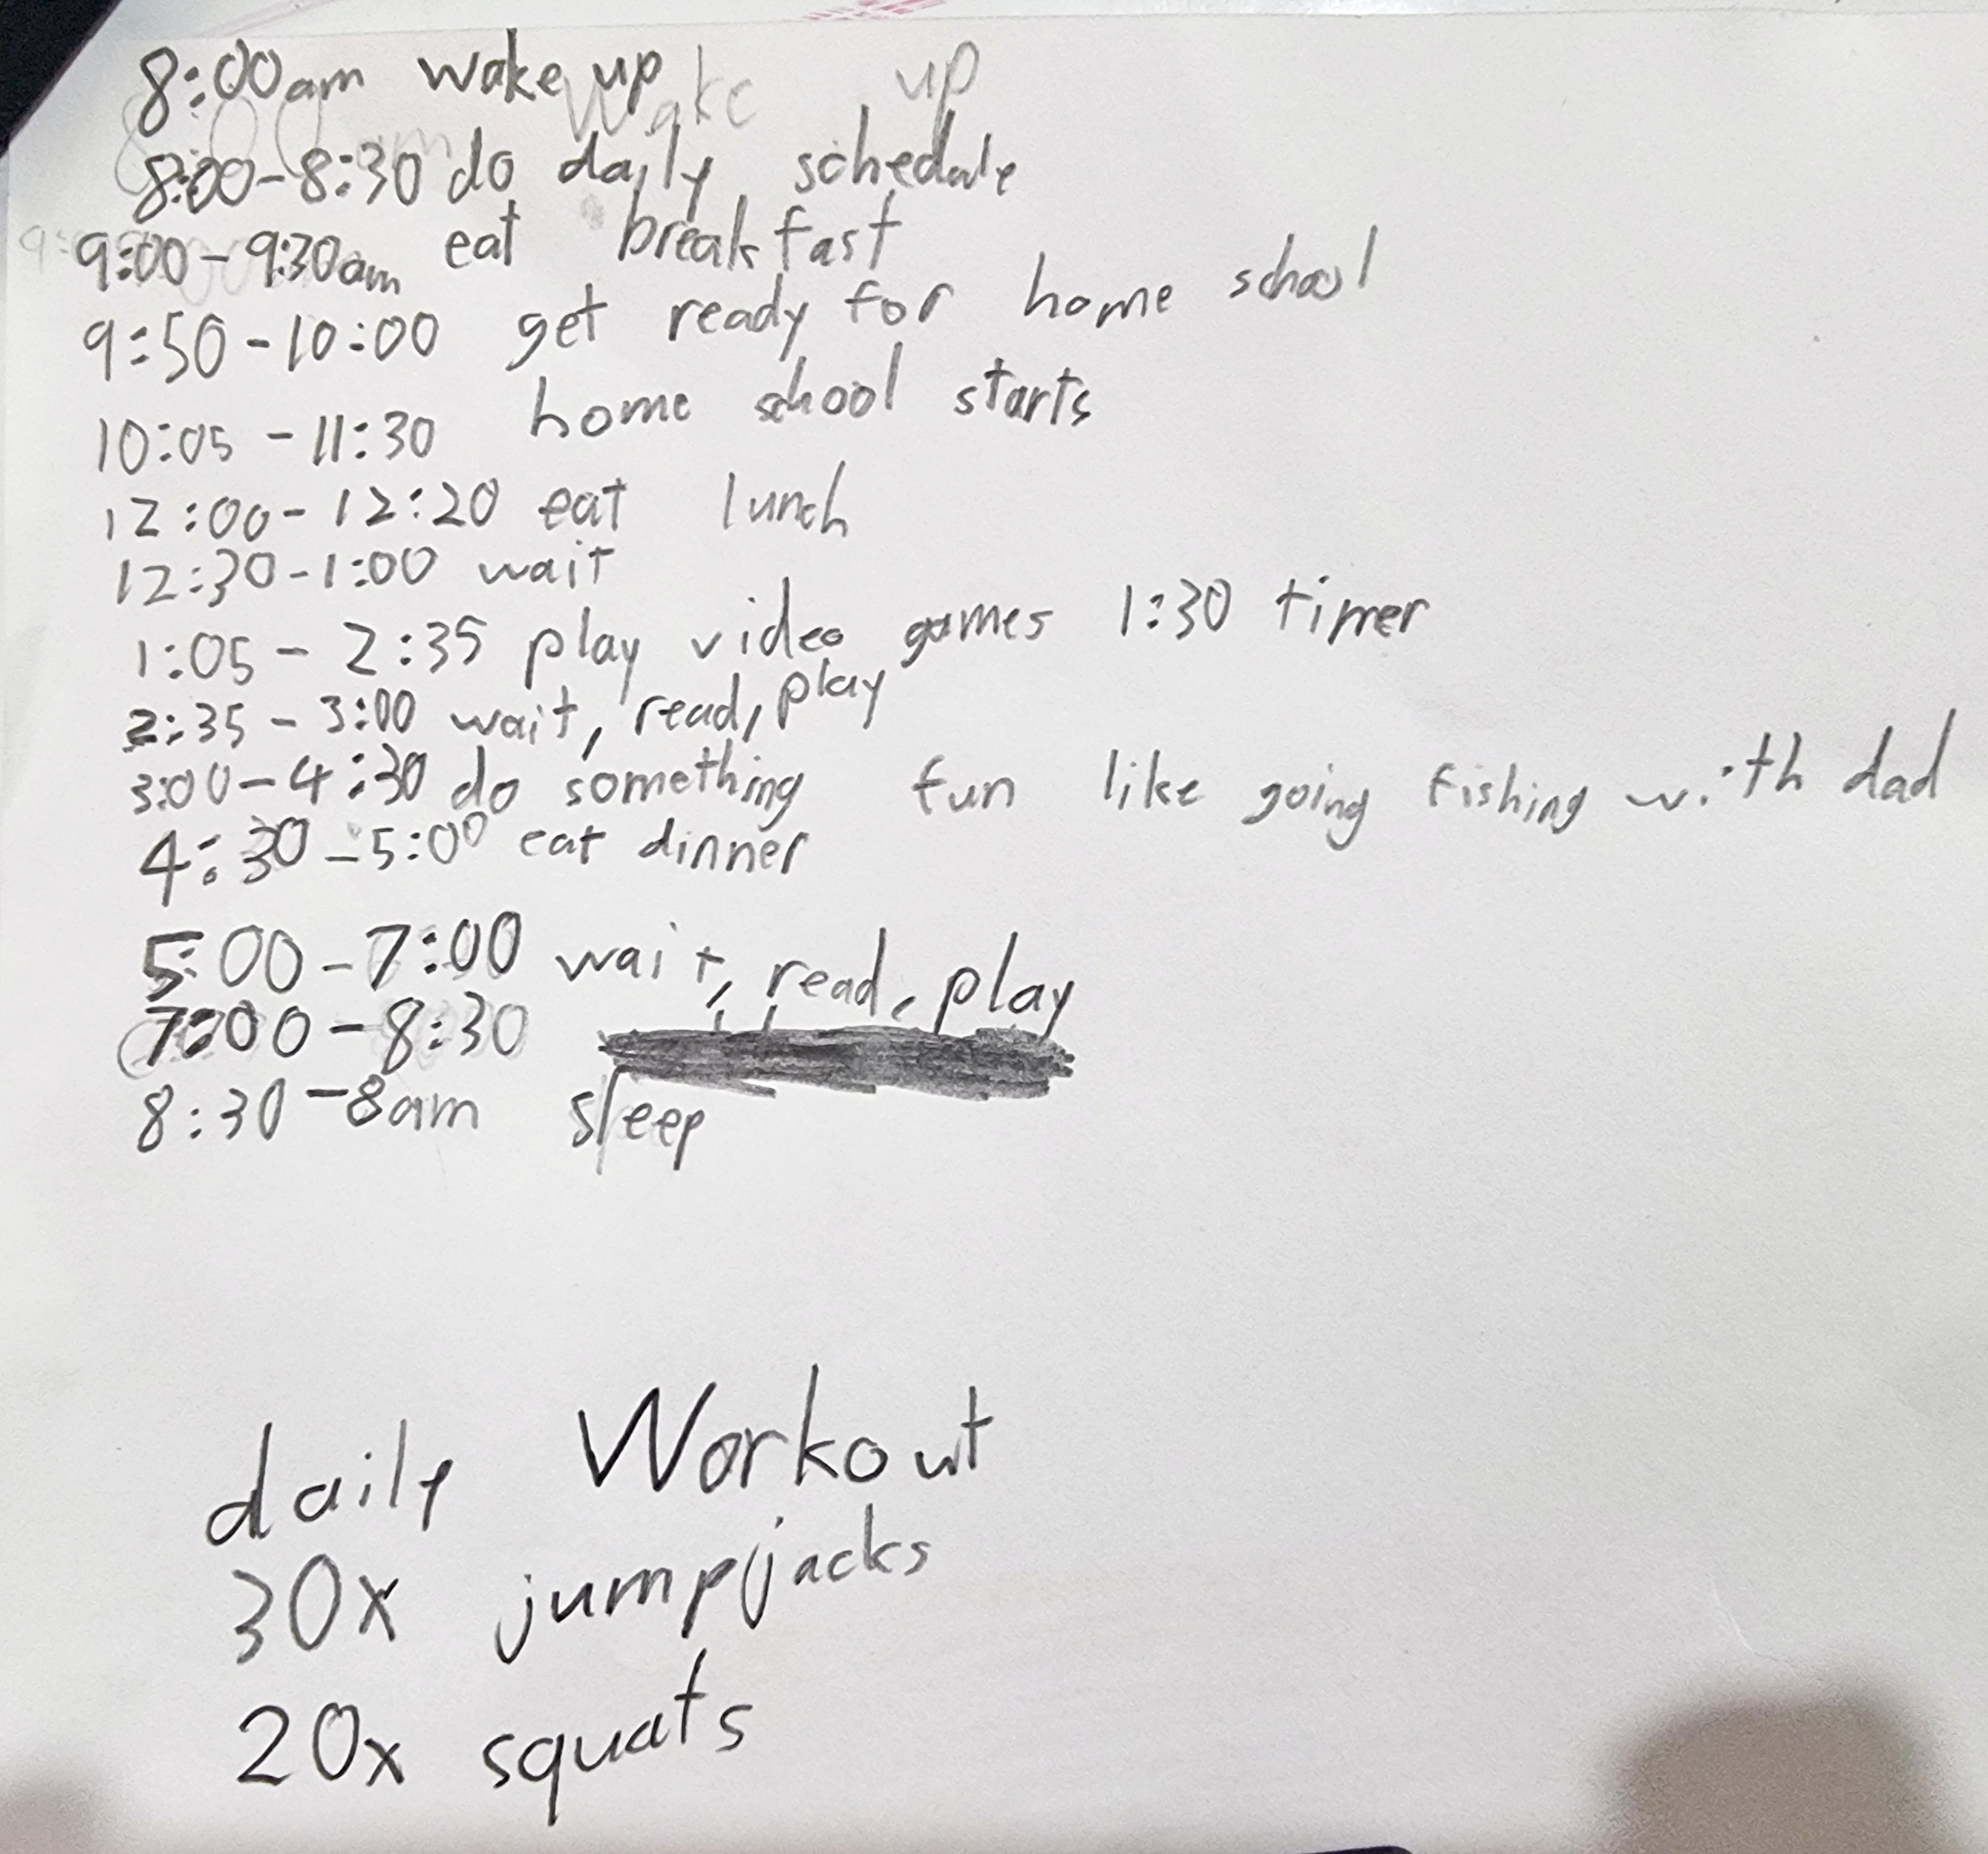 8:00am wake up
8:00-8:30 do daily schedule
9:00-9:30am eat breakfast
9:50-10:00 get ready for home school
10:05-11:30 home school starts
12:00-12:20 eat lunch
12:30-1:00 wait
1:05-2:35 play video games 1:30 timer
2:35-3:00 wait, read, play
3:00-4:30 do something fun like going fishing with dad
4:30-5:00 eat dinner
5:00-7:00 wait, read, play
7:00-8:30
8:30-8am sleep
daily Workout
30x jumpjacks
20x squats